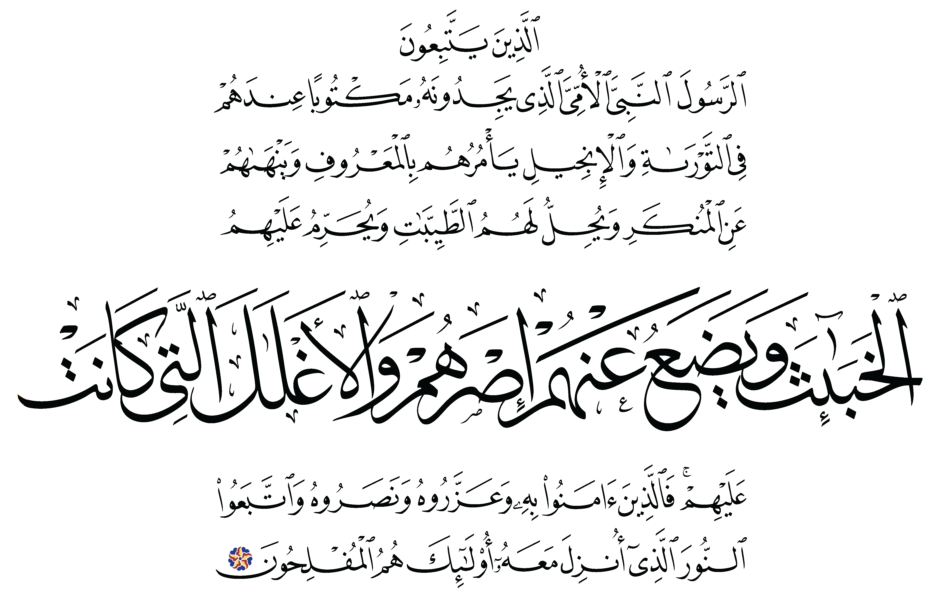 ٱلَّذِينَ يَتَّبِعُونَ
ٱلرَّسُولَ ٱلنَّبِىَّ ٱلْأُمِّىَّ ٱلَّذِى يَجِدُونَهُۥ مَكْتُوبًا عِندَهُمْ
فِى ٱلتَّوْرَىٰةِ وَٱلْإِنجِيلِ يَأْمُرُهُم بِٱلْمَعْرُوفِ وَيَنْهَىٰهُمْ
عَنِ ٱلْمُنكَرِ وَيُحِلُّ لَهُمُ ٱلطَّيِّبَٰتِ وَيُحَرِّمُ عَلَيْهِمُ
ٱلْخَبَٰٓئِثَ وَيَضَعُ عَنْهُمْ إِصْرَهُمْ وَٱلْأَغْلَٰلَ ٱلَّتِى كَانَتْ
عَلَيْهِمْ ۚ فَٱلَّذِينَ ءَامَنُوا۟ بِهِۦ وَعَزَّرُوهُ وَنَصَرُوهُ وَٱتَّبَعُوا۟
ٱلنُّورَ ٱلَّذِىٓ أُنزِلَ مَعَهُۥٓ أُو۟لَٰٓئِكَ هُمُ ٱلْمُفْلِحُونَ